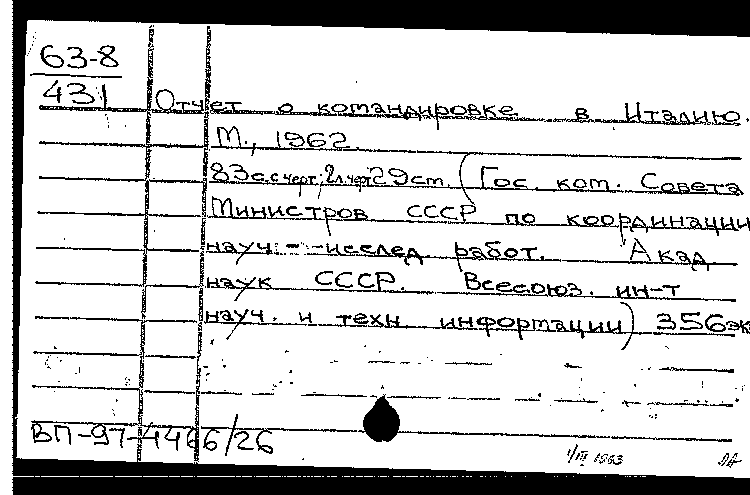 63-8
431
Отчет о командировке в Италию.
М., 1962.
83с.с черт; 2л.черт 29см. (Гос. ком. Совета
Министров СССР по координации
науч.-исслед работ. Акад.
наук СССР. Всесоюз. ин-т
науч. и техн. информации) 356эк
ВП-97-4466/26
1/III 1963